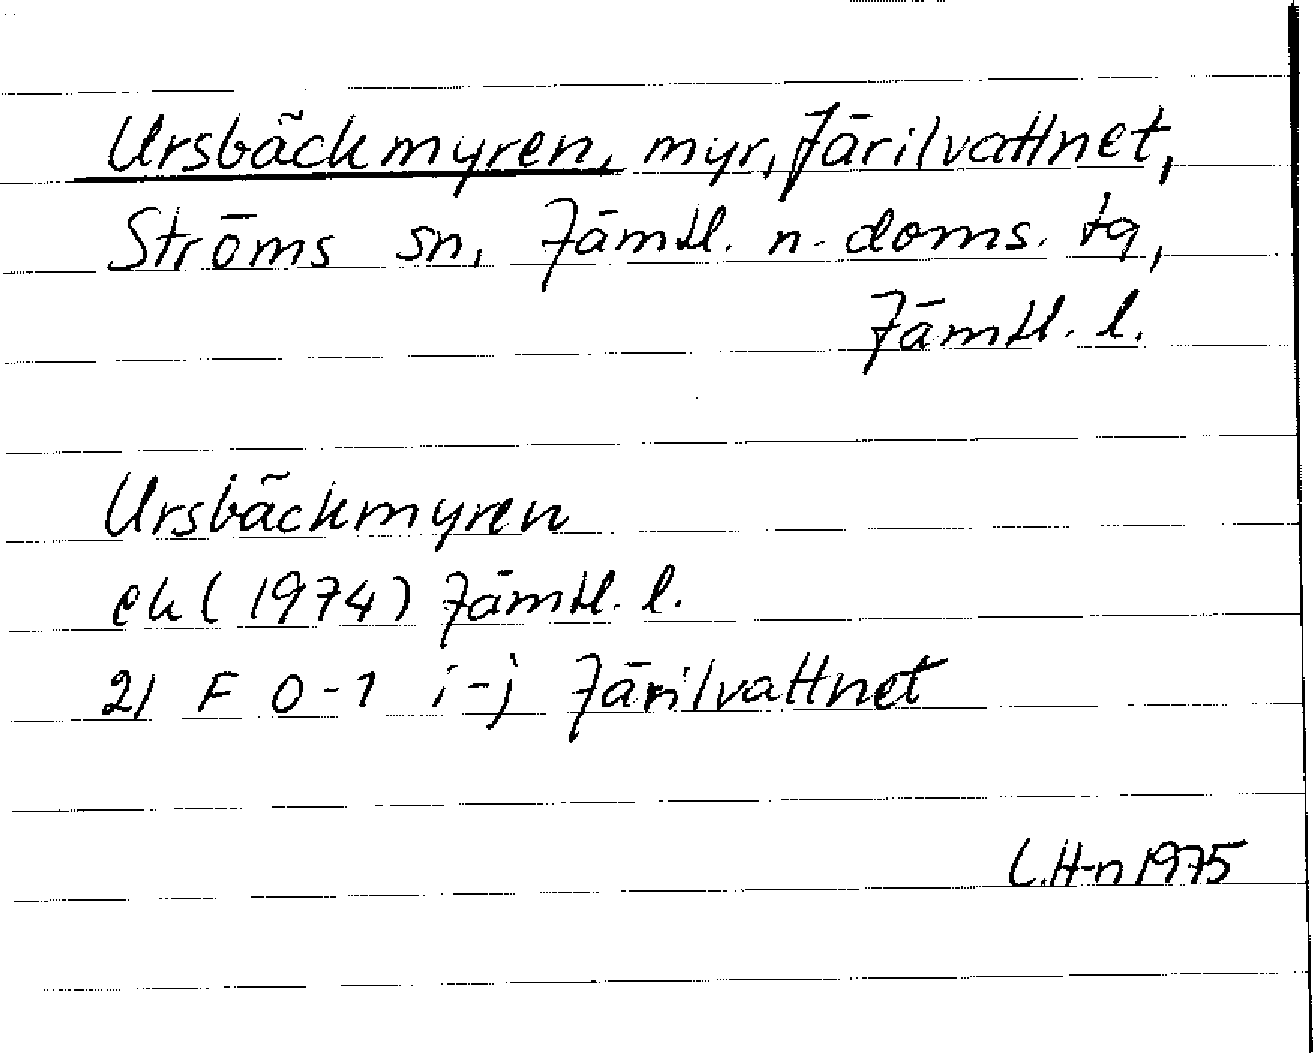 Ursbäckmyren, myr, Järilvattnet,
Ströms sn, Jämtl. n. doms. tg,
Jämtl. l.
Ursbäckmyren
ek (1974) Jämtl. l.
21 F 0-1 i-j Järilvattnet
L.H-n 1975